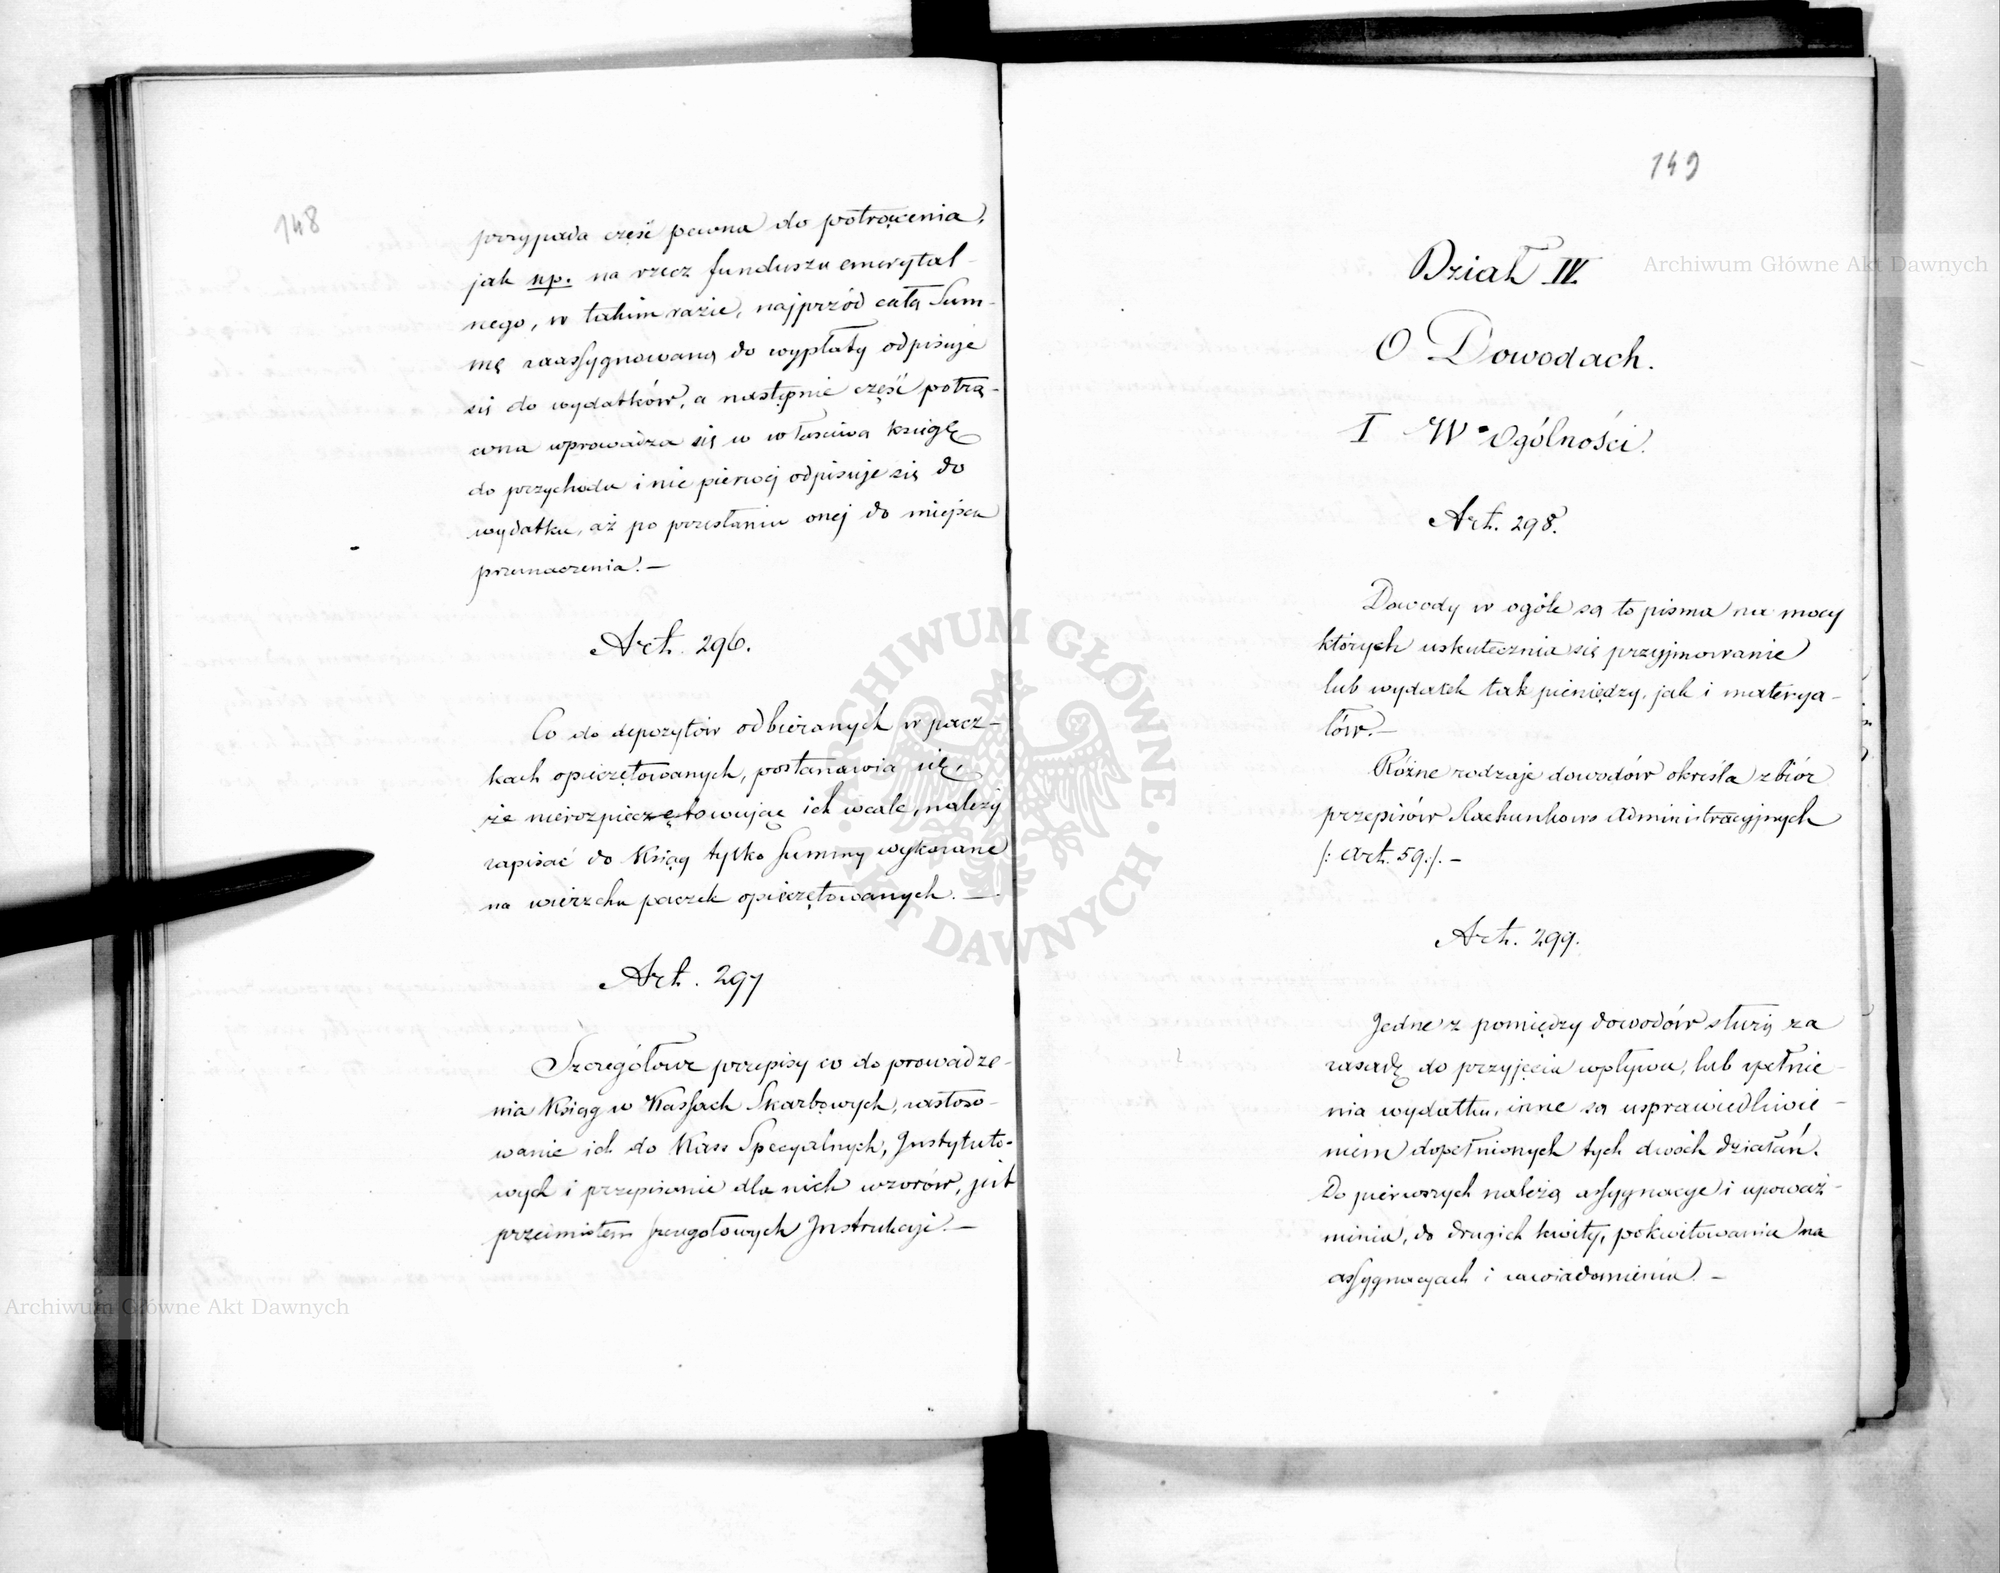 148
przypada część pewna do potrącenia,
jak np. na rzecz funduszu emerytal-
nego, w takim razie, najprzód całą Sum-
mę zaassygnowaną do wypłaty odpisuje
się do wydatków, a następnie część potrą-
cona wprowadza się w właściwą księgę
do przychodu i nie pierwej odpisuje się do
wydatku, aż po przesłaniu onej do miejsca
przeznaczenia.—
Art. 296.
Co do depozytów odbieranych w pacz-
kach opieczętowanych, postanawia się,
że nierozpieczętowując ich wcale, należy
zapisać do Ksiąg tylko Summy wykazane
na wierzchu paczek opieczętowanych. —
Art. 297
Szczegółowe przepisy co do prowadze-
nia Ksiąg w Kassach Skarbowych, zastoso-
wanie ich do Kass Specyalnych, Instytuto-
wych i przepisanie dla nich wzorów, jest
przedmiotem szczegółowych Instrukcji.—
149
Dział IV.
O Dowodach.
I W Ogólności.
Art. 298.
Dowody w ogóle są to pisma na mocy
których uskutecznia się przyjmowanie
lub wydatek tak pieniędzy, jak i materya-
łów.—
Różne rodzaje dowodów określa zbiór
przepisów Rachunkowo Administracyjnych
/: Art. 59:/. —
Art. 299.
Jedne z pomiędzy dowodów służą za
zasadę do przyjęcia wpływu, lub spełnie-
nia wydatku, inne są usprawiedliwie-
niem dopełnionych tych dwóch działań.
Do pierwszych należą assygnacye i upoważ-
nienia, do drugich kwity, pokwitowania na
assygnacyach i zawiadomienia. —
Archiwum Główne Akt Dawnych
Archiwum Główne Akt Dawnych
ARCHIWUM GŁÓWNE · AKT DAWNYCH ·